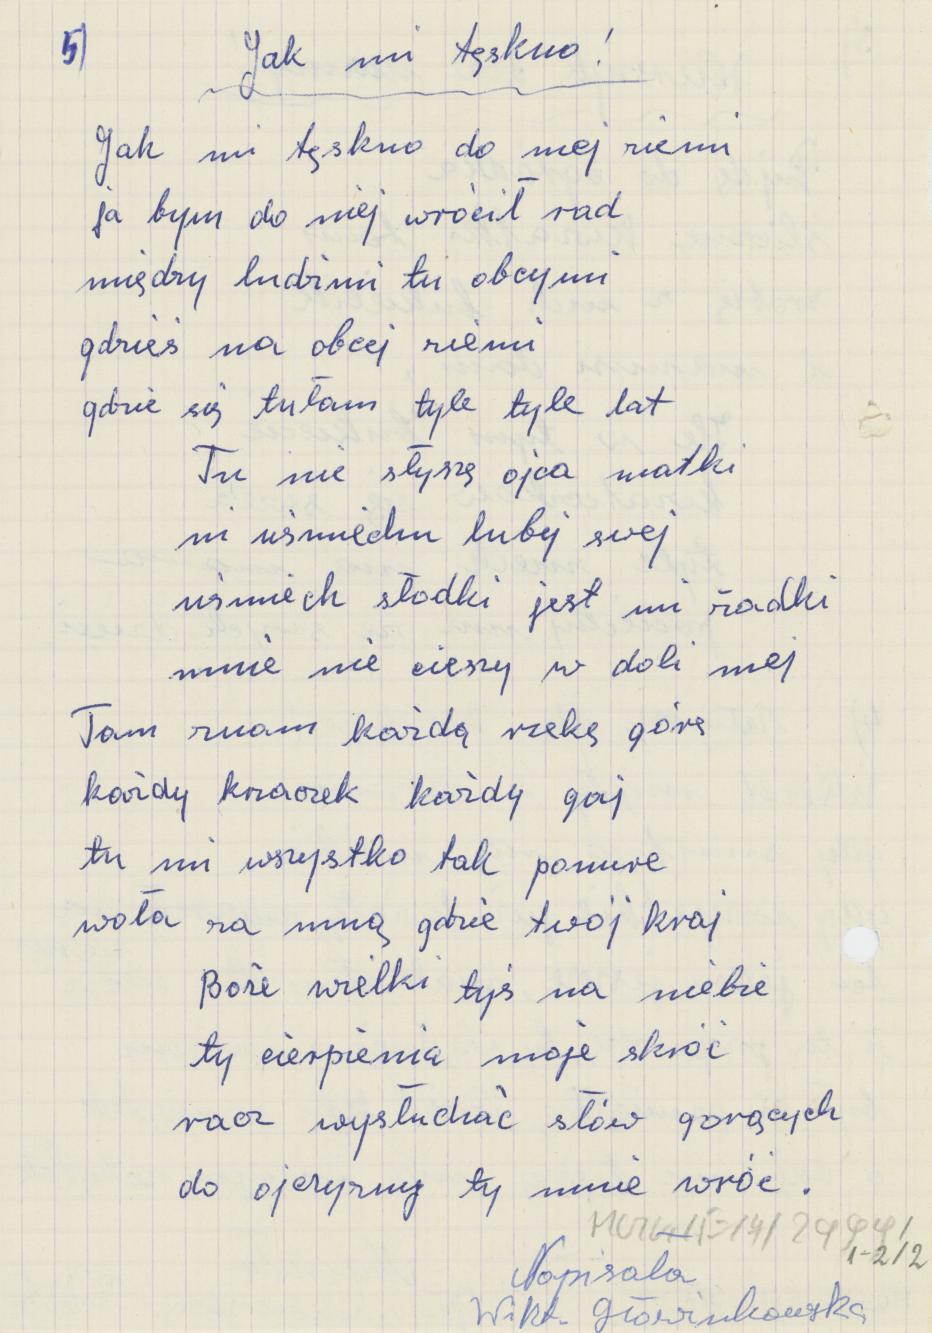 5)
Jak mi tęskno!
Jak mi tęskno do mej ziemi
ja bym do niej wrócił rad
między ludźmi tu obcymi
gdzieś na obcej ziemi
gdzie się tułam tyle tyle lat
Tu nie słyszę ojca matki
ni uśmiechu lubej swej
uśmiech słodki jest mi rzadki
mnie nie cieszy w doli mej
Tam znam każdą rzekę górę
każdy krzaczek każdy gaj
tu mi wszystko tak ponure
woła za mną gdzie twój kraj
Boże wielki tyś na niebie
ty cierpienia moje skróć
racz wysłuchać słów gorących
do ojczyzny ty mnie wróć.
1-2/2
Napisała
Wikt. Głowinkowska